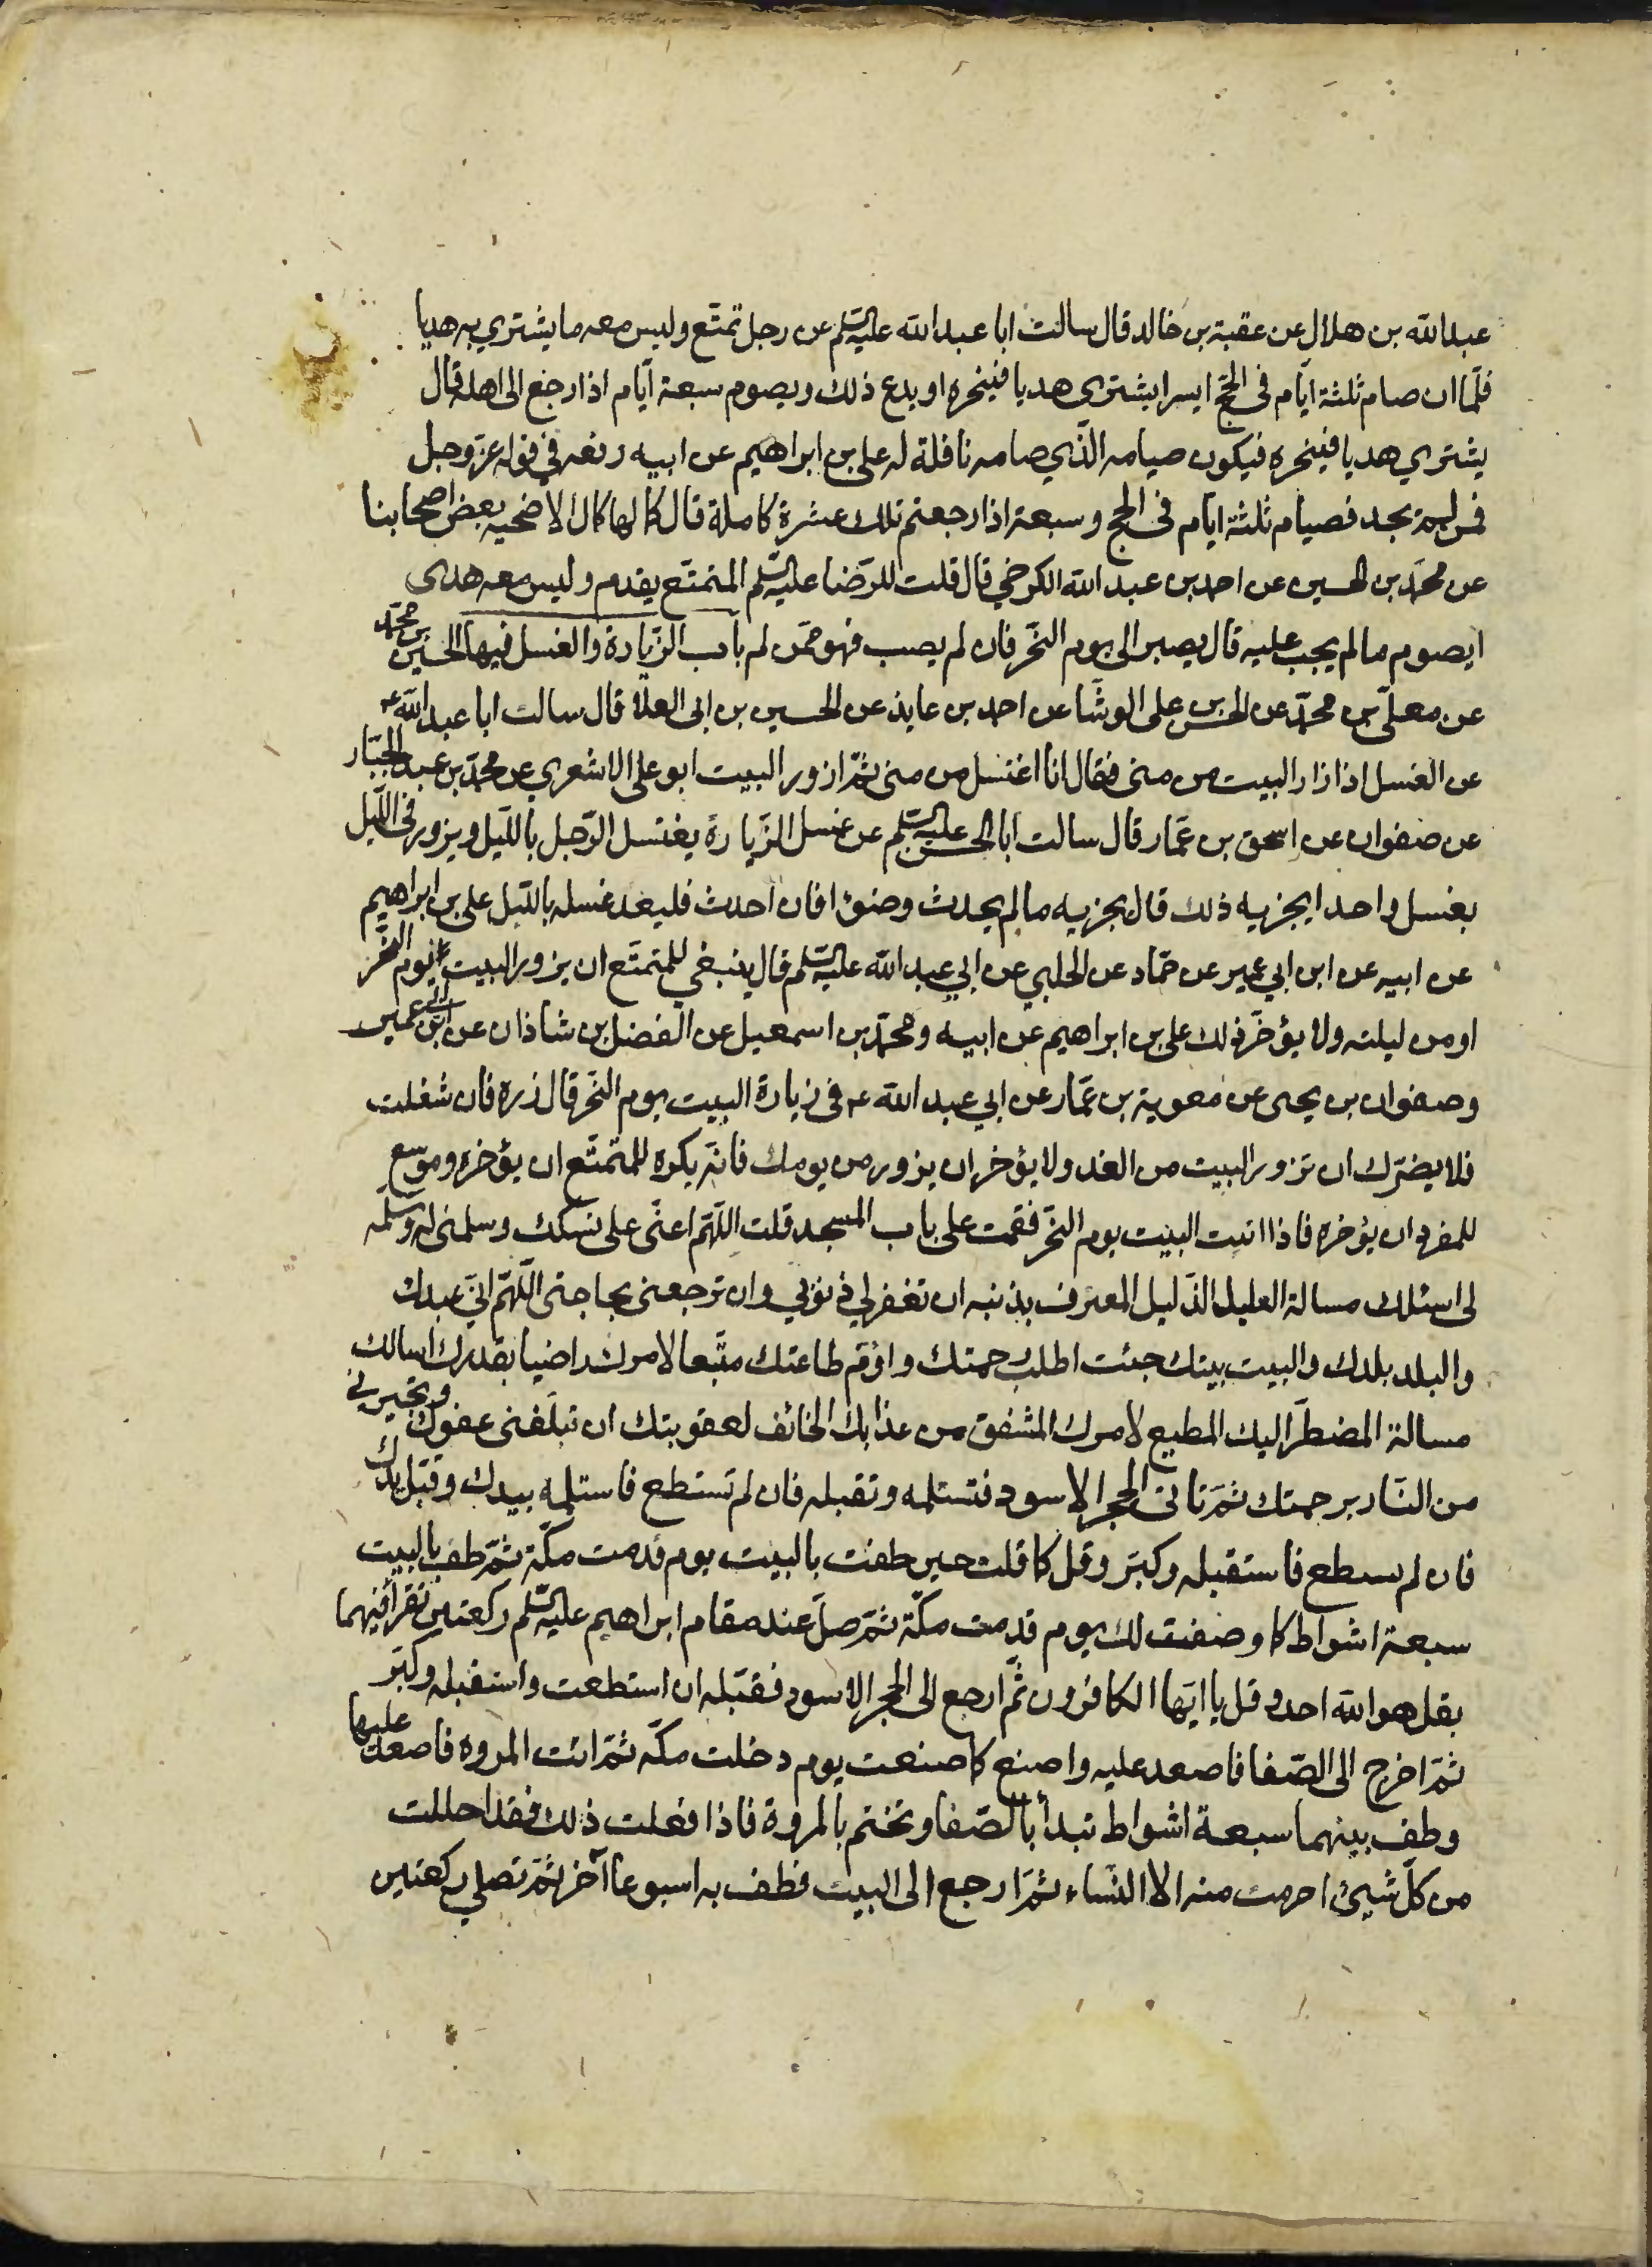 عبدالله بن هلال عن عقبة بن خالد قال سالت ابا عبدالله عليه السلم عن رجل تمتّع وليس معه ما يشتري به هديا
فلمّا ان صام ثلثة ايّام فى الحجّ ايسر ايشترى هديا فينحره او يدع ذلك ويصوم سبعة ايّام اذا رجع الى اهله قال
يشتري هديا فينحره فيكون صيامه الّذي صامه نافلة له على بن ابراهيم عن ابيه رفعه في قوله عزّ وجل
فمن لم يجد فصيام ثلثة ايام فى الحج وسبعة اذا رجعتم تلك عشرة كاملة قال كمالها كمال الاضحيه بعض اصحابنا
عن محمّد بن الحسين عن احمد بن عبد الله الكرخي قال قلت للرّضا عليه السلم المتمتّع يقدم وليس معه هدى
ايصوم ما لم يجب عليه قال يصبر الى يوم النّحر فان لم يصب فهو ممّن لم باب الزّيارة والغسل فيها الحسين بن محمّد
عن معلّى بن محمّد عن الحسن بن على الوشّا عن احمد بن عايذ عن الحسين بن ابى العلا قال سالت ابا عبد الله ع
عن الغسل اذا زار البيت من منى فقال انا اغتسل من منى ثمّ ازور البيت ابو على الاشعري عن محمّد بن عبد الجبّار
عن صفوان عن اسحق بن عمّار قال سالت ابا الحسن عليه السلم عن غسل الزّيارة يغتسل الرّجل بالليل ويزور فى اللّيل
بغسل واحد ايجزيه ذلك قال يجزيه ما لم يحدث وضؤا فان احدث فليعد غسله باللّيل على بن ابراهيم
عن ابيه عن ابن ابي عمير عن حمّاد عن الحلبي عن ابي عبد الله عليه السلم قال ينبغي للمتمتّع ان يزور البيت يوم النّحر
او من ليلته ولا يؤخّر ذلك على بن ابراهيم عن ابيه ومحمّد بن اسمعيل عن الفضل بن شاذان عن ابن ابي عمير
وصفوان بن يحيى عن معوية بن عمّار عن ابي عبد الله ع فى زيارة البيت يوم النّحر قال زره فان شغلت
فلا يضرّك ان تزور البيت من الغد ولا يؤخر ان يزور من يومك فانّه يكره للمتمتّع ان يؤخره وموسّع
للمفرد ان يؤخره فاذا اتيت البيت يوم النّحر فقمت على باب المسجد قلت اللّهمّ اعنّى على نسكك وسلمنى له وسلّمه
لى اسئلك مسالة العليل الذّليل المعترف بذنبه ان تغفر لي ذنوبي وان ترجعنى بحاجتى اللّهمّ انّي عبدك
والبلد بلدك والبيت بيتك جئت اطلب رحمتك واؤم طاعتك متّبعا لامرك راضيا بقدرك اسالك
مسالة المضطرّ اليك المطيع لامرك المشفق من عذابك الخائف لعقوبتك ان تبلّغنى عفوك وتجيرني
من النّار برحمتك ثمّ تاتى الحجر الاسود فتستلمه وتقبله فان لم تستطع فاستلمه بيدك وقبّل يدك
فان لم تسطع فاستقبله وكبّر وقل كما قلت حين طفت بالبيت يوم قدمت مكّة ثمّ طف بالبيت
سبعة اشواط كما وصفت لك يوم قدمت مكّة ثمّ صلّ عند مقام ابراهيم عليه السلم ركعتين تقرأ فيهما
بقل هو الله احد وقل يا ايّها الكافرون ثمّ ارجع الى الحجر الاسود فقبّله ان استطعت واستقبله وكبّر
ثمّ اخرج الى الصّفا فاصعد عليه واصنع كما صنعت يوم دخلت مكّه ثمّ ائت المروه فاصعد عليها
وطف بينهما سبعة اشواط تبدأ بالصّفا وتختم بالمروة فاذا فعلت ذلك فقد احللت
من كلّ شيئ احرمت منه الا النّساء ثمّ ارجع الى البيت فطف به اسبوعا آخر ثمّ تصلي ركعتين